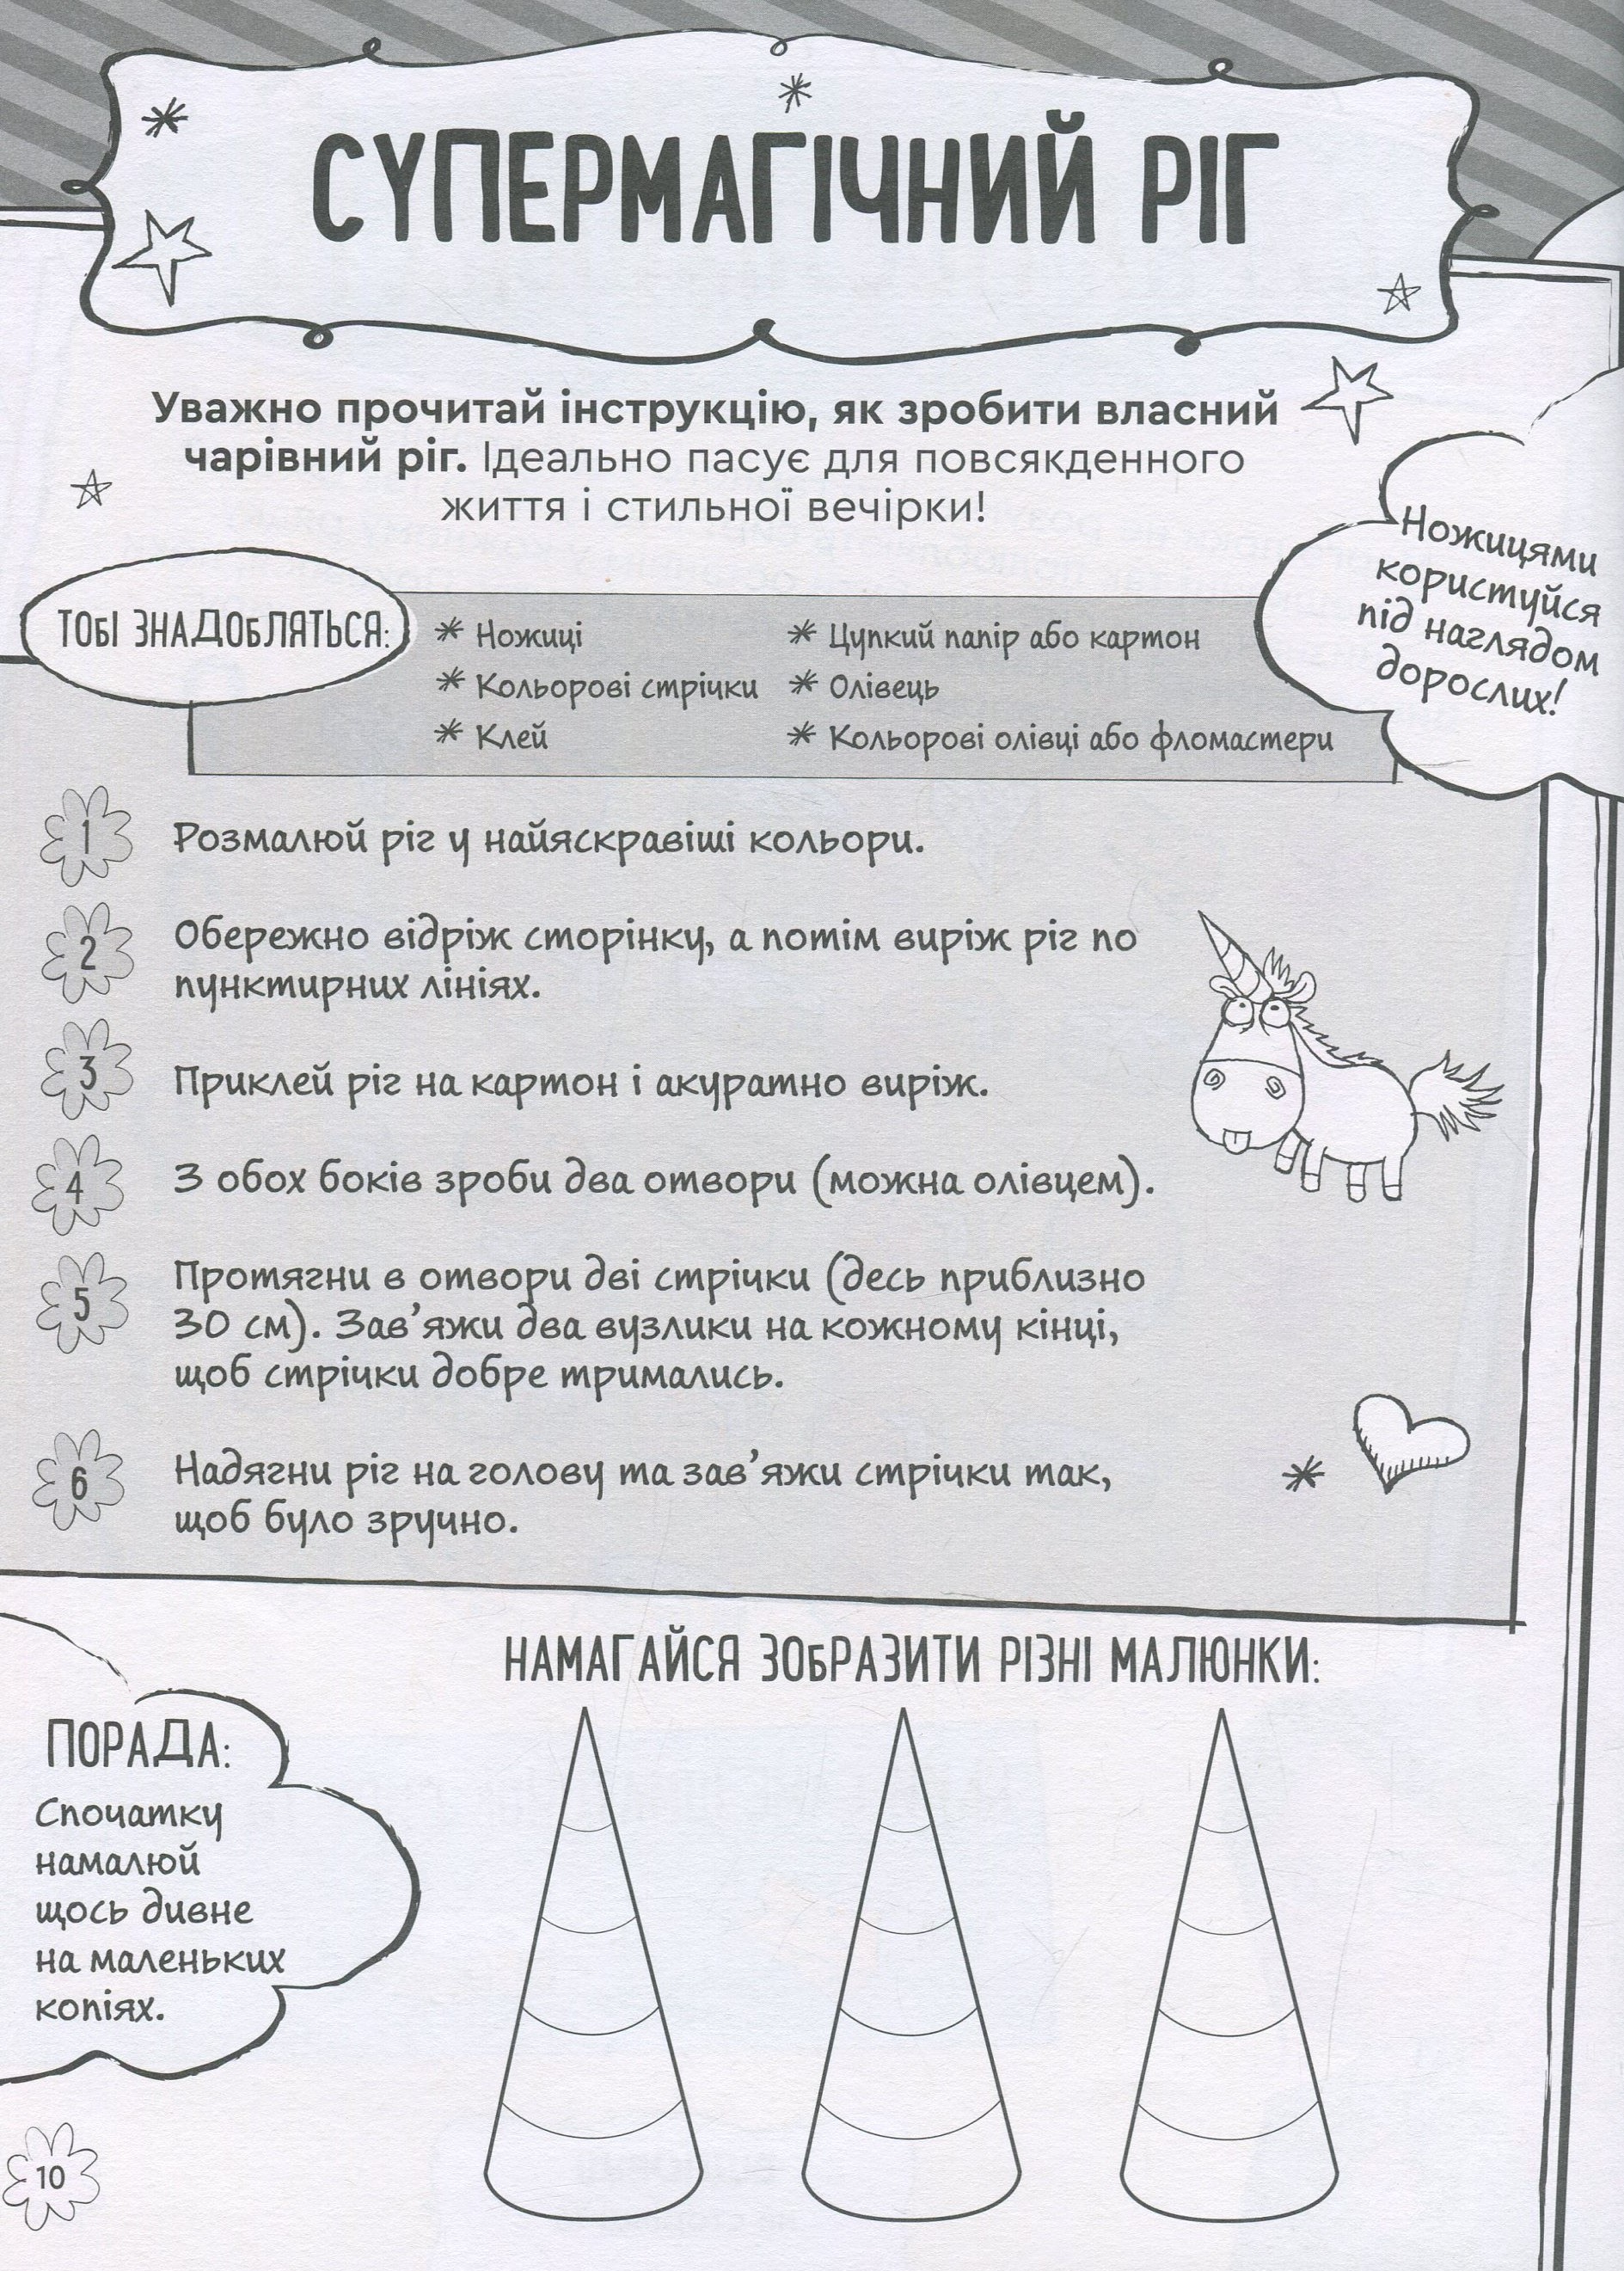 СУПЕРМАГІЧНИЙ РІГ
Уважно прочитай інструкцію, як зробити власний
чарівний ріг. Ідеально пасує для повсякденного
життя і стильної вечірки!
Ножицями
користуйся
під наглядом
дорослих!
ТОБІ ЗНАДОБЛЯТЬСЯ:
* Ножиці
* Кольорові стрічки
* Клей
* Цупкий папір або картон
* Олівець
* Кольорові олівці або фломастери
1 Розмалюй ріг у найяскравіші кольори.
2 Обережно відріж сторінку, а потім виріж ріг по
пунктирних лініях.
3 Приклей ріг на картон і акуратно виріж.
4 З обох боків зроби два отвори (можна олівцем).
5 Протягни в отвори дві стрічки (десь приблизно
30 см). Зав'яжи два вузлики на кожному кінці,
щоб стрічки добре тримались.
6 Надягни ріг на голову та зав'яжи стрічки так,
щоб було зручно.
НАМАГАЙСЯ ЗОБРАЗИТИ РІЗНІ МАЛЮНКИ:
ПОРАДА:
Спочатку
намалюй
щось дивне
на маленьких
копіях.
10